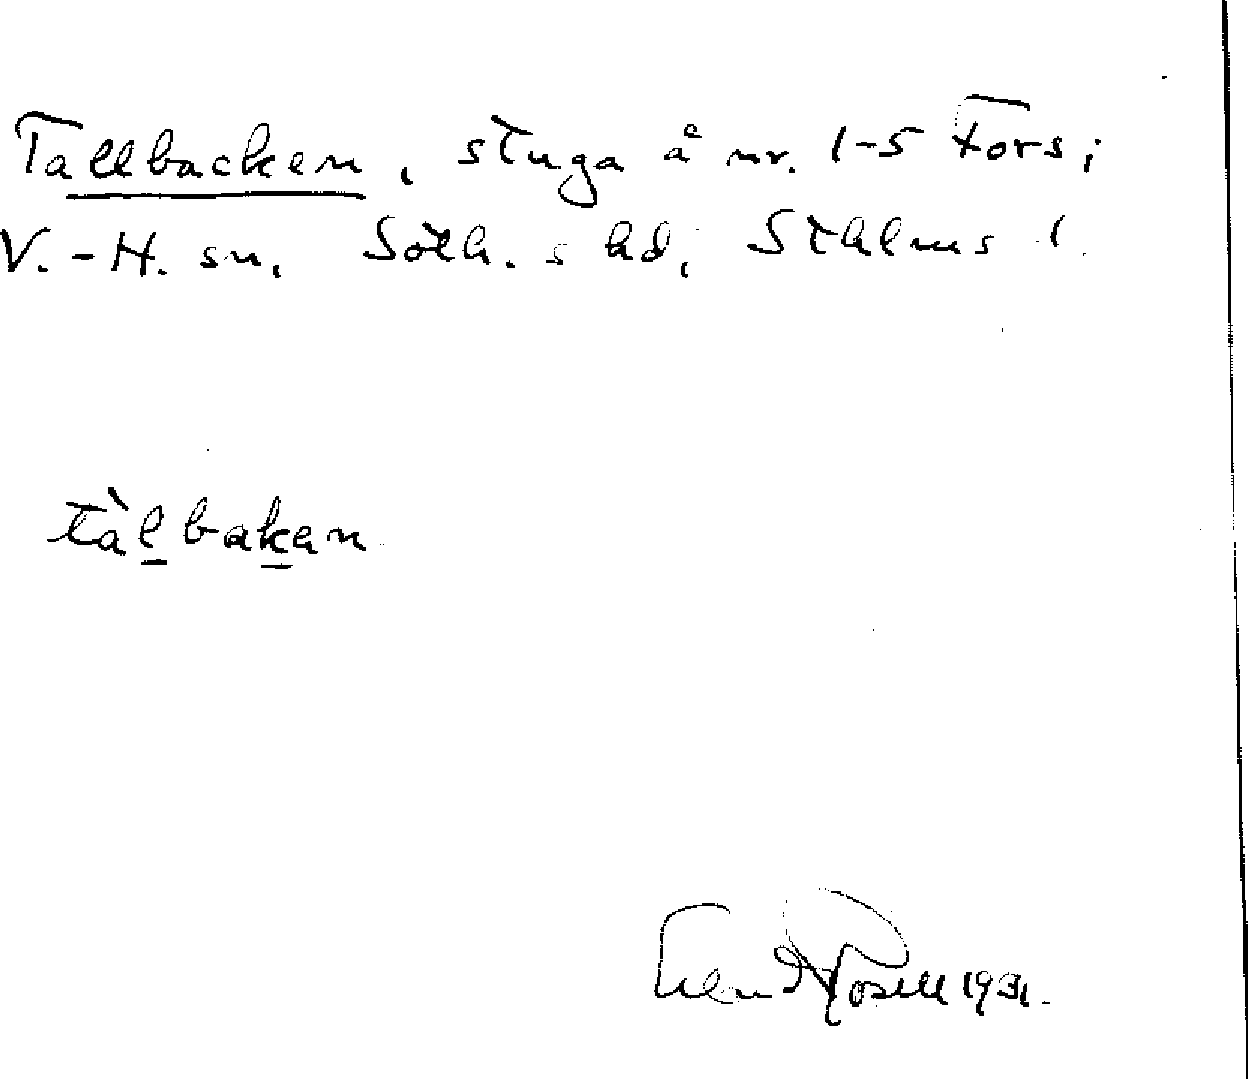 Tallbacken, stuga å nr. 1-5 Fors i
V.-H. sn, Soth. s hd, Sthlms l
tàlbakan
Rosell 1931.